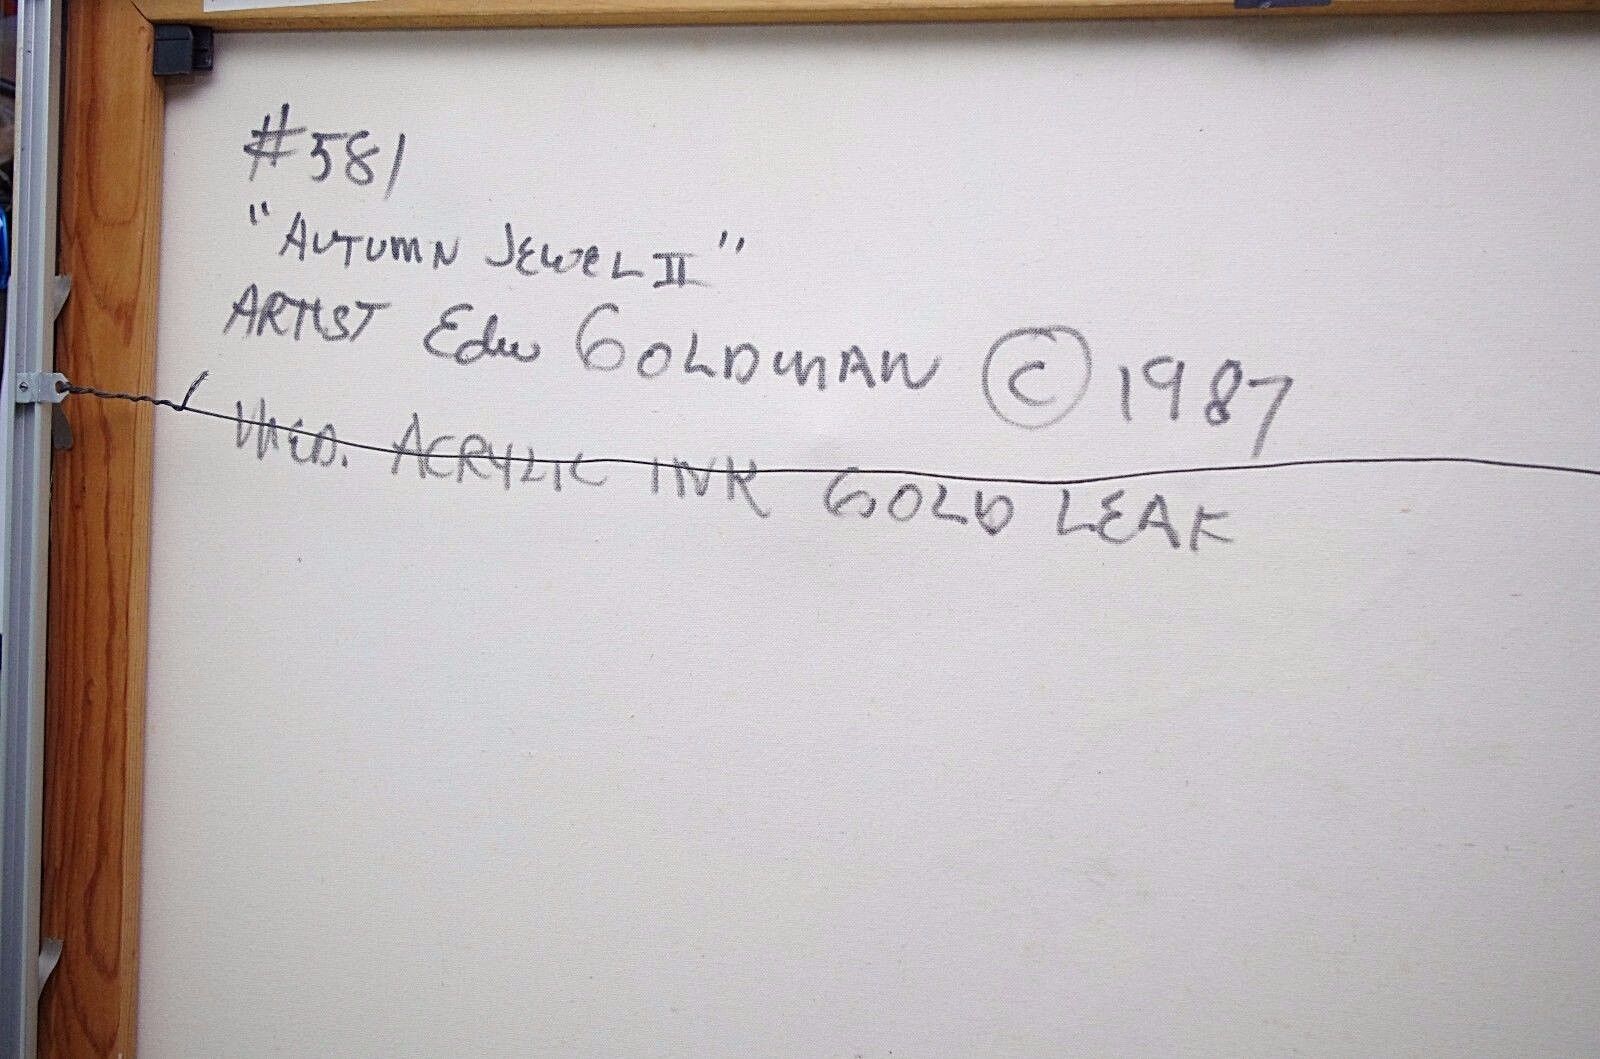 #581
"AUTUMN JEWEL II"
ARTIST Edw GOLDMAN © 1987
MED. ACRYLIC INK GOLD LEAF